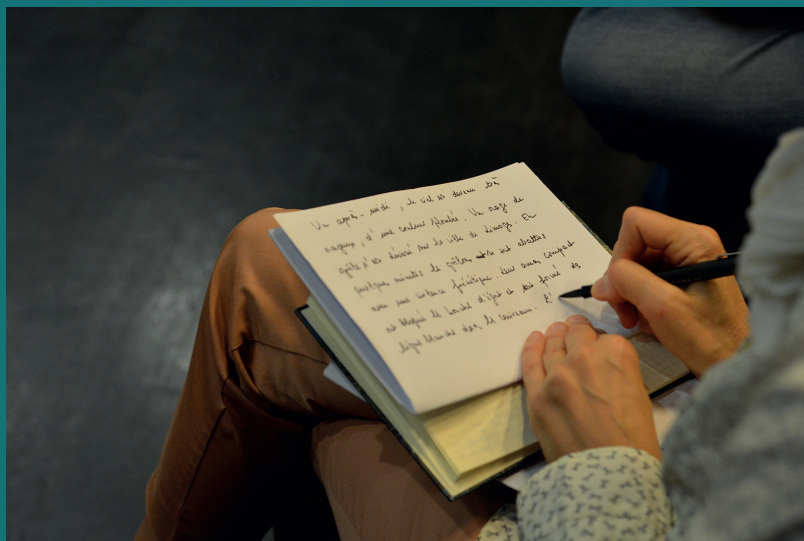 Un après-midi, le ciel est devenu très
nuageux, d'une couleur plombée. Un nuage de
grêle s'est déversé sur la ville de Limoges. En
quelques minutes les grêlons se sont abattus
avec une violence frénétique. Leur amas compact
ont bloqué les bouches d'égout et formé des
lignes blanches dans les caniveaux. L'